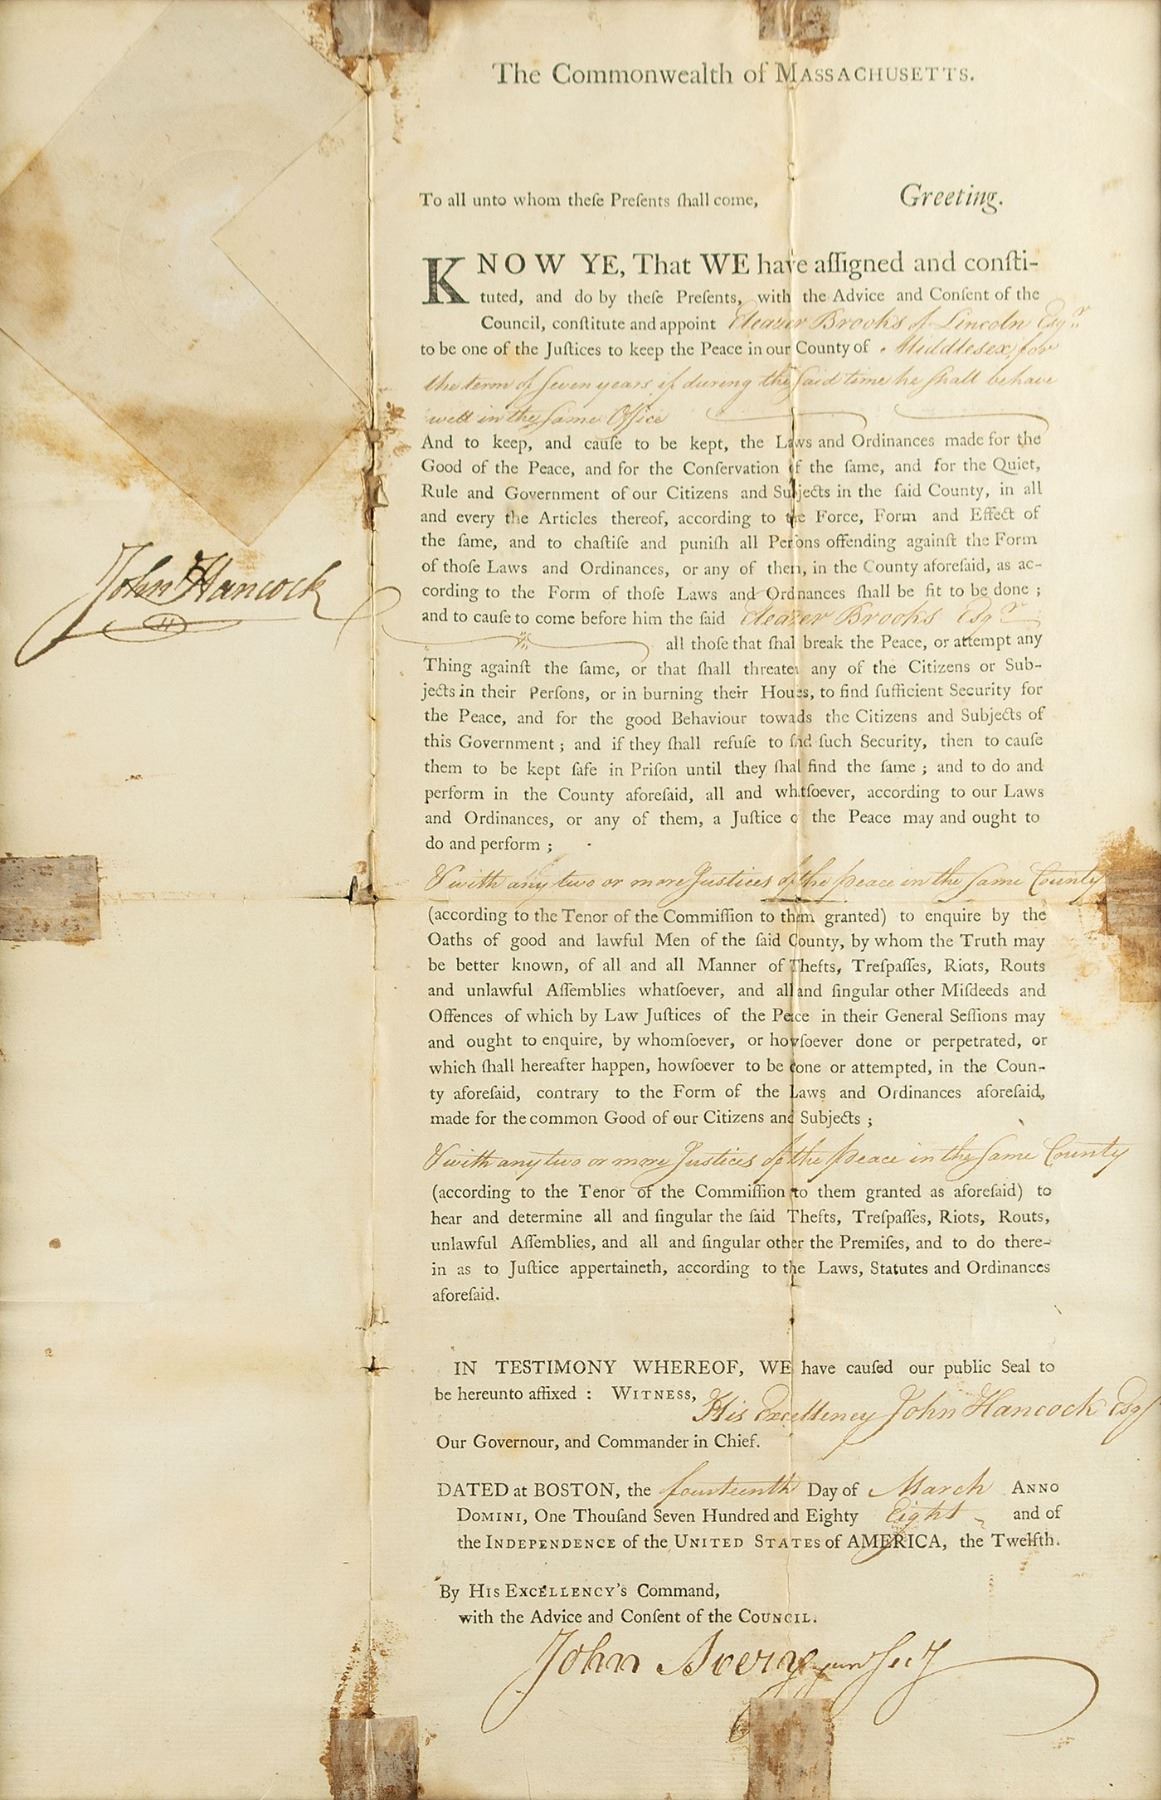 The Commonwealth of MASSACHUSETTS.
To all unto whom theſe Preſents ſhall come, Greeting.
KNOW YE, That WE have aſſigned and conſti-
tuted, and do by theſe Preſents, with the Advice and Conſent of the
Council, conſtitute and appoint Eleazer Brooks of Lincoln Esqr
to be one of the Juſtices to keep the Peace in our County of Middlesex, for
the term of ſeven years if during the ſaid time he ſhall behave
well in the ſame Office
And to keep, and cauſe to be kept, the Laws and Ordinances made for the
Good of the Peace, and for the Conſervation of the ſame, and for the Quiet,
Rule and Government of our Citizens and Subjects in the ſaid County, in all
and every the Articles thereof, according to the Force, Form and Effect of
the ſame, and to chaſtiſe and puniſh all Perſons offending againſt the Form
of thoſe Laws and Ordinances, or any of them, in the County aforeſaid, as ac-
cording to the Form of thoſe Laws and Ordinances ſhall be fit to be done ;
and to cauſe to come before him the ſaid Eleazer Brooks Esqr
John Hancock
all thoſe that ſhall break the Peace, or attempt any
Thing againſt the ſame, or that ſhall threaten any of the Citizens or Sub-
jects in their Perſons, or in burning their Houſes, to find ſufficient Security for
the Peace, and for the good Behaviour towards the Citizens and Subjects of
this Government ; and if they ſhall refuſe to find ſuch Security, then to cauſe
them to be kept ſafe in Priſon until they ſhall find the ſame ; and to do and
perform in the County aforeſaid, all and whatſoever, according to our Laws
and Ordinances, or any of them, a Juſtice of the Peace may and ought to
do and perform ;
& with any two or more Justices of the peace in the ſame County
(according to the Tenor of the Commiſſion to them granted) to enquire by the
Oaths of good and lawful Men of the ſaid County, by whom the Truth may
be better known, of all and all Manner of Thefts, Treſpaſſes, Riots, Routs
and unlawful Aſſemblies whatſoever, and all and ſingular other Miſdeeds and
Offences of which by Law Juſtices of the Peace in their General Seſſions may
and ought to enquire, by whomſoever, or howſoever done or perpetrated, or
which ſhall hereafter happen, howſoever to be done or attempted, in the Coun-
ty aforeſaid, contrary to the Form of the Laws and Ordinances aforeſaid,
made for the common Good of our Citizens and Subjects ;
& with any two or more Justices of the peace in the ſame County
(according to the Tenor of the Commiſſion to them granted as aforeſaid) to
hear and determine all and ſingular the ſaid Thefts, Treſpaſſes, Riots, Routs,
unlawful Aſſemblies, and all and ſingular other the Premiſes, and to do there-
in as to Juſtice appertaineth, according to the Laws, Statutes and Ordinances
aforeſaid.
IN TESTIMONY WHEREOF, WE have cauſed our public Seal to
be hereunto affixed : WITNESS, His Excellency John Hancock Esqr
Our Governour, and Commander in Chief.
DATED at BOSTON, the fourteenth Day of March ANNO
DOMINI, One Thouſand Seven Hundred and Eighty Eight and of
the INDEPENDENCE of the UNITED STATES of AMERICA, the Twelfth.
By HIS EXCELLENCY'S Command,
with the Advice and Conſent of the COUNCIL.
John Avery jun Secy